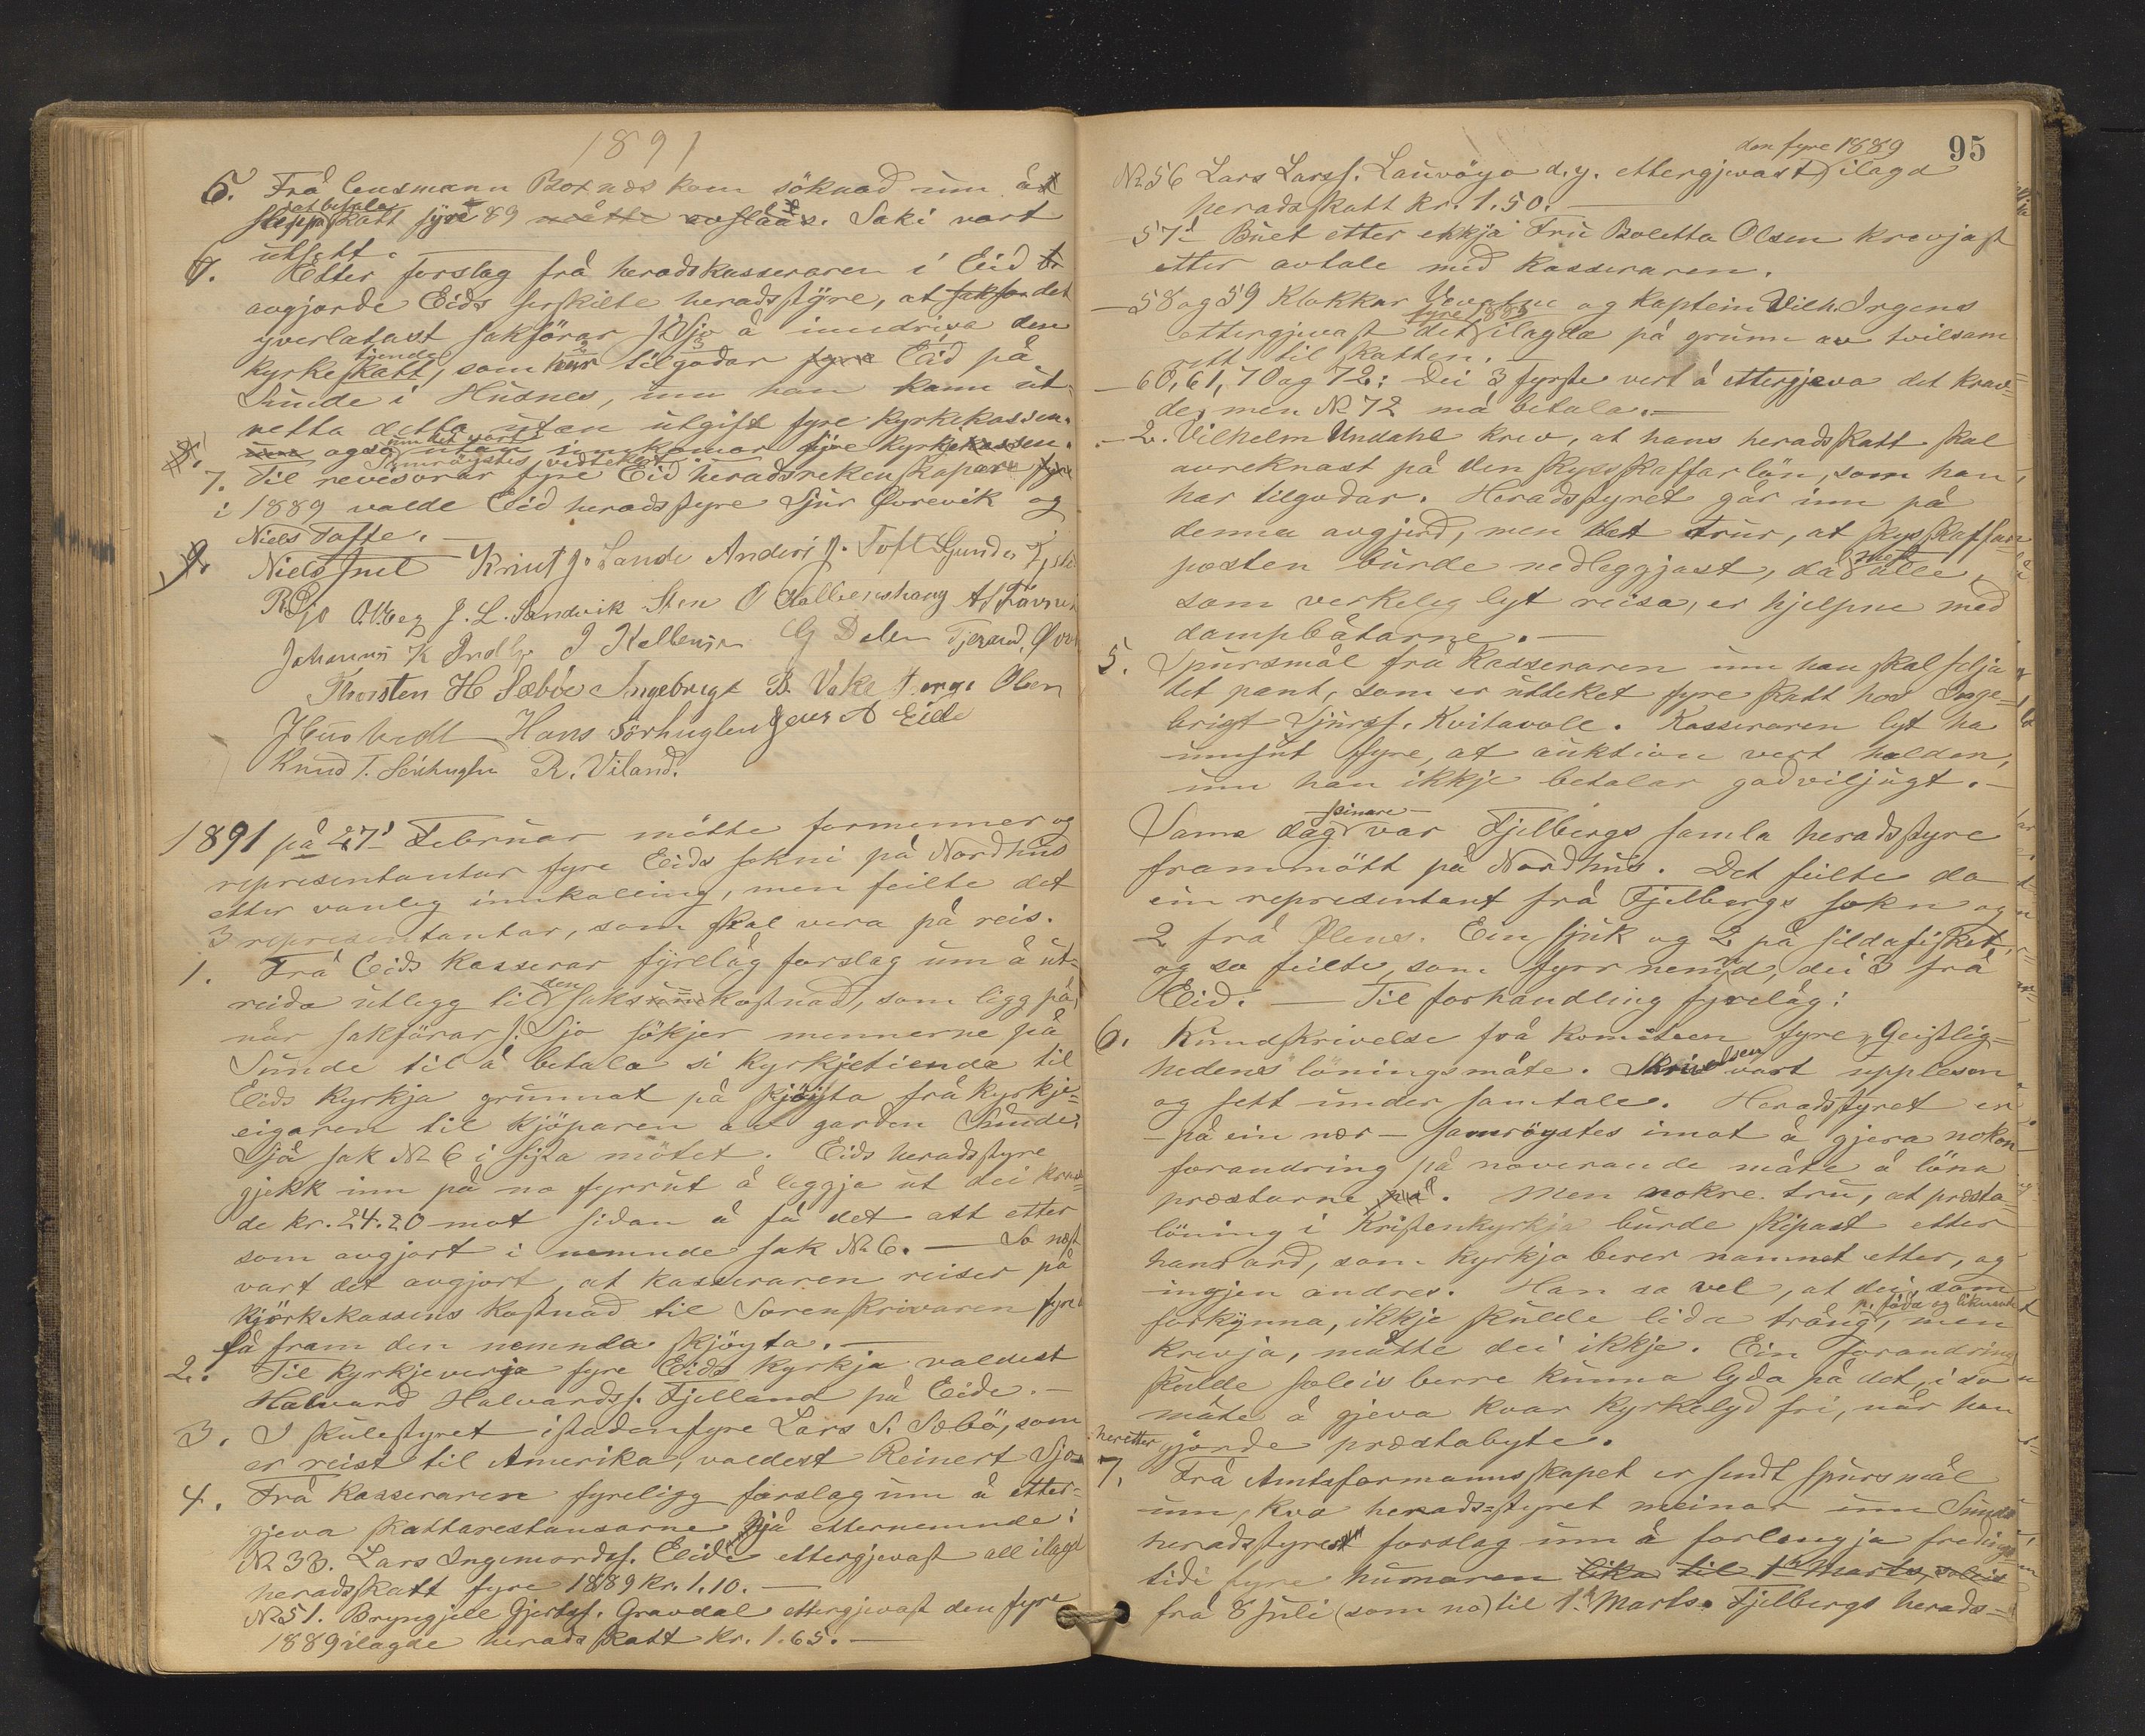 1891
5. Frå lensmann Boxnæs kom söknad um å
sleppa at betala skatt fyre 89 måtte avslåas. Saki vart
utsett.
6. Etter forslag frå heradskasseraren i Eid
avgjorde Eids serskilte heradsstyre, at det
yverlatast sakförar Sjo å inndriva den
kyrkeskatt, tiende som tilgodar fyre Eid på
Sunde i Husnes, um han kann ut-
retta detta utan utgift fyre kyrkekassen.
um ogso utan innkomor fyre kyrkekassen.
Samröystes vidteket.
7. Til revisorar fyre Eid heradsrekenskapar fyre
i 1889 valde Eid heradsstyre Sjur Øvrevik og
Niels Tofte.
Niels Juel Knut J. Sande Anders J. Toft Gunder
R. Sjo O. Vee J. L. Sandvik Sten O
Johannes K I Kallevig G Dalen Tjerand, Øvre
Thorsten H Sæböe Ingebrigt B. Vake Børge Olsen
J Hans Sörhuglen Jens A Eide
Knud T. Sörhuglen R. Viland.
1891 på 27d Februar mötte formenner og
representantar fyre Eids sokni på Nordhus
etter vanleg innkaling, men feilte det
3 representantar, som skal vera på reis.
1. Frå Eids kasserar fyrelåg forslag um å ut-
reida utlegg til den sakskostnad, som ligg på,
når sakförar S. Sjo sökjer mennerne på
Sunde til å betala si kyrkjetiende til
Eids kyrkja grunnat på skjöyta frå kyrkje-
eigaren til kjöparen av garden Sunde;
Sjå sak № 6 i sista mötet. Eids heradsstyre
gjekk inn på no fyrrut å leggja ut dei krav-
de kr. 24.20 mot sidan å få det att etter
som avgjort i nemnde sak № 6. — So næst
vart det avgjort, at kasseraren reiser på
kjörkekassens kostnad til Sorenskrivaren fyre
få fram den nemnda skjöyta. —
2. Til kyrkjeverja fyre Eids kyrkja valdest
Halvard Halvardss. Fjelland på Eide. —
3. I skulestyret istadenfyre Lars S. Sæbö, som
er reist til Amerika, valdest Reinert Sjo
4. Frå kasseraren fyreligg forslag um å etter-
gjeva skattarestansarne hjå etternemnde:
№ 33. Lars Ingemordss. Eide ettergjevast all ilagd
heradsskatt fyre 1889 kr. 1.10. —
№ 51. Bryngjell Gjertss. Gravdal ettergjevast den fyre
1889 ilagde heradsskatt kr. 1.65. —
95
den fyre 1889
№ 56 Lars Larss. Lauvöyo d.y. ettergjevast ilagd
heradsskatt kr. 1.50. —
— 57d Buet etter ekkja Fru Boletta Olsen krevjast
etter avtale med kasseraren.
— 58 og 59 Klokkar og kaptein Vilh. Irgens
ettergjevast det fyre 1889 ilagda på grunn av tvilsam
rett til skatten. —
— 60, 61, 70 og 72: Dei 3 fyrste vert å ettergjeva det krav-
de; men № 72 må betala. —
— 2. Vilhelm Undahl krev, at hans heradsskatt skal
avreknast på den skyssskaffarlön, som han
har tilgodar. Heradsstyret går inn på
denna avgjerd, men det trur, at skysskaffar-
posten burde nedleggjast, då mest alle,
som verkeleg lyt reisa, er hjelpne med
dampbåtarne. —
5. Spursmål frå kasseraren um han skal selja
det pant, som er utteket fyre skatt hos Inge-
brigt Sjurss. Kvitavoll. Kasseraren lyt ha
umsut fyre, at auktion vert halden,
um han ikkje betalar godviljugt. —
Sama dag seinare var Fjelbergs samla heradsstyre
frammött på Nordhus. Det feilte da
ein representant frå Fjelbergs sokn og
2 frå Ølens. Ein sjuk og 2 på sildafisket,
og so feilte, som fyrr nemnd, dei 3 frå
Eid. — Til forhandling fyrelåg:
6. Rundskrivelse frå komiteen fyre „Geistlig-
hedens löningsmåte. Skrivelsen vart upplesen
og sett under samtale. Heradsstyret er
— på ein nær — samröystes imot å gjera nokon
forandring på noverande måte å löna
prestarne på. Men nokre tru, at presta-
löning i Kristenkyrkja burde skipast etter
hans ord, som kyrkja berer namnet etter, og
ingjen andres. Han sa vel, at dei, som
forkynna, ikkje skulde lida trång, p. föda og liknande men
krevja, måtte dei ikkje. Ein forandring
skulde soleis berre kunna lyda på det, i so
måte å gjeva kvar kyrkelyd fri, når han
heretter gjörde prestabyte.
7. Frå Amtsformannskapet er sendt spursmål
um, kva herads-styret meinar um Sunds
heradsstyres forslag um å forlengja fredings-
tidi fyre humaren lika til 1ste Marts, soleis
frå 8 juli (som no) til 1ste Marts. Fjelbergs herads-